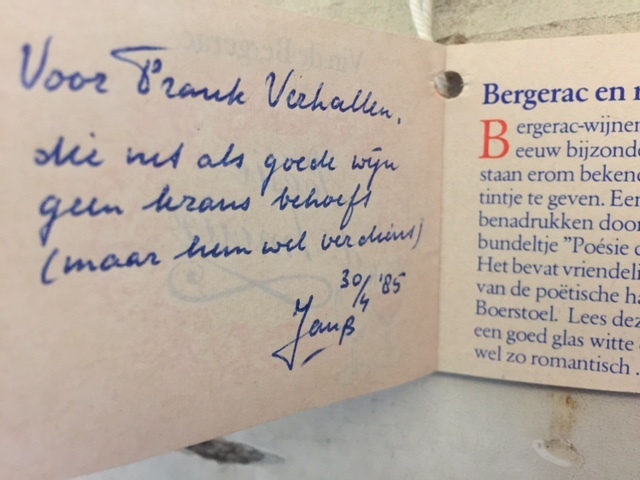 Voor Frank Verhallen,
die net als goede wijn
geen krans behoeft
(maar hem wel verdient)
30/4 '85
Vin de Bergerac
Bergerac en
Bergerac-wijnen
eeuw bijzond
staan erom beken
tintje te geven. Een
benadrukken door
bundeltje "Poésie d
Het bevat vriendeli
van de poëtische ha
Boerstoel. Lees dez
een goed glas witte
wel zo romantisch .